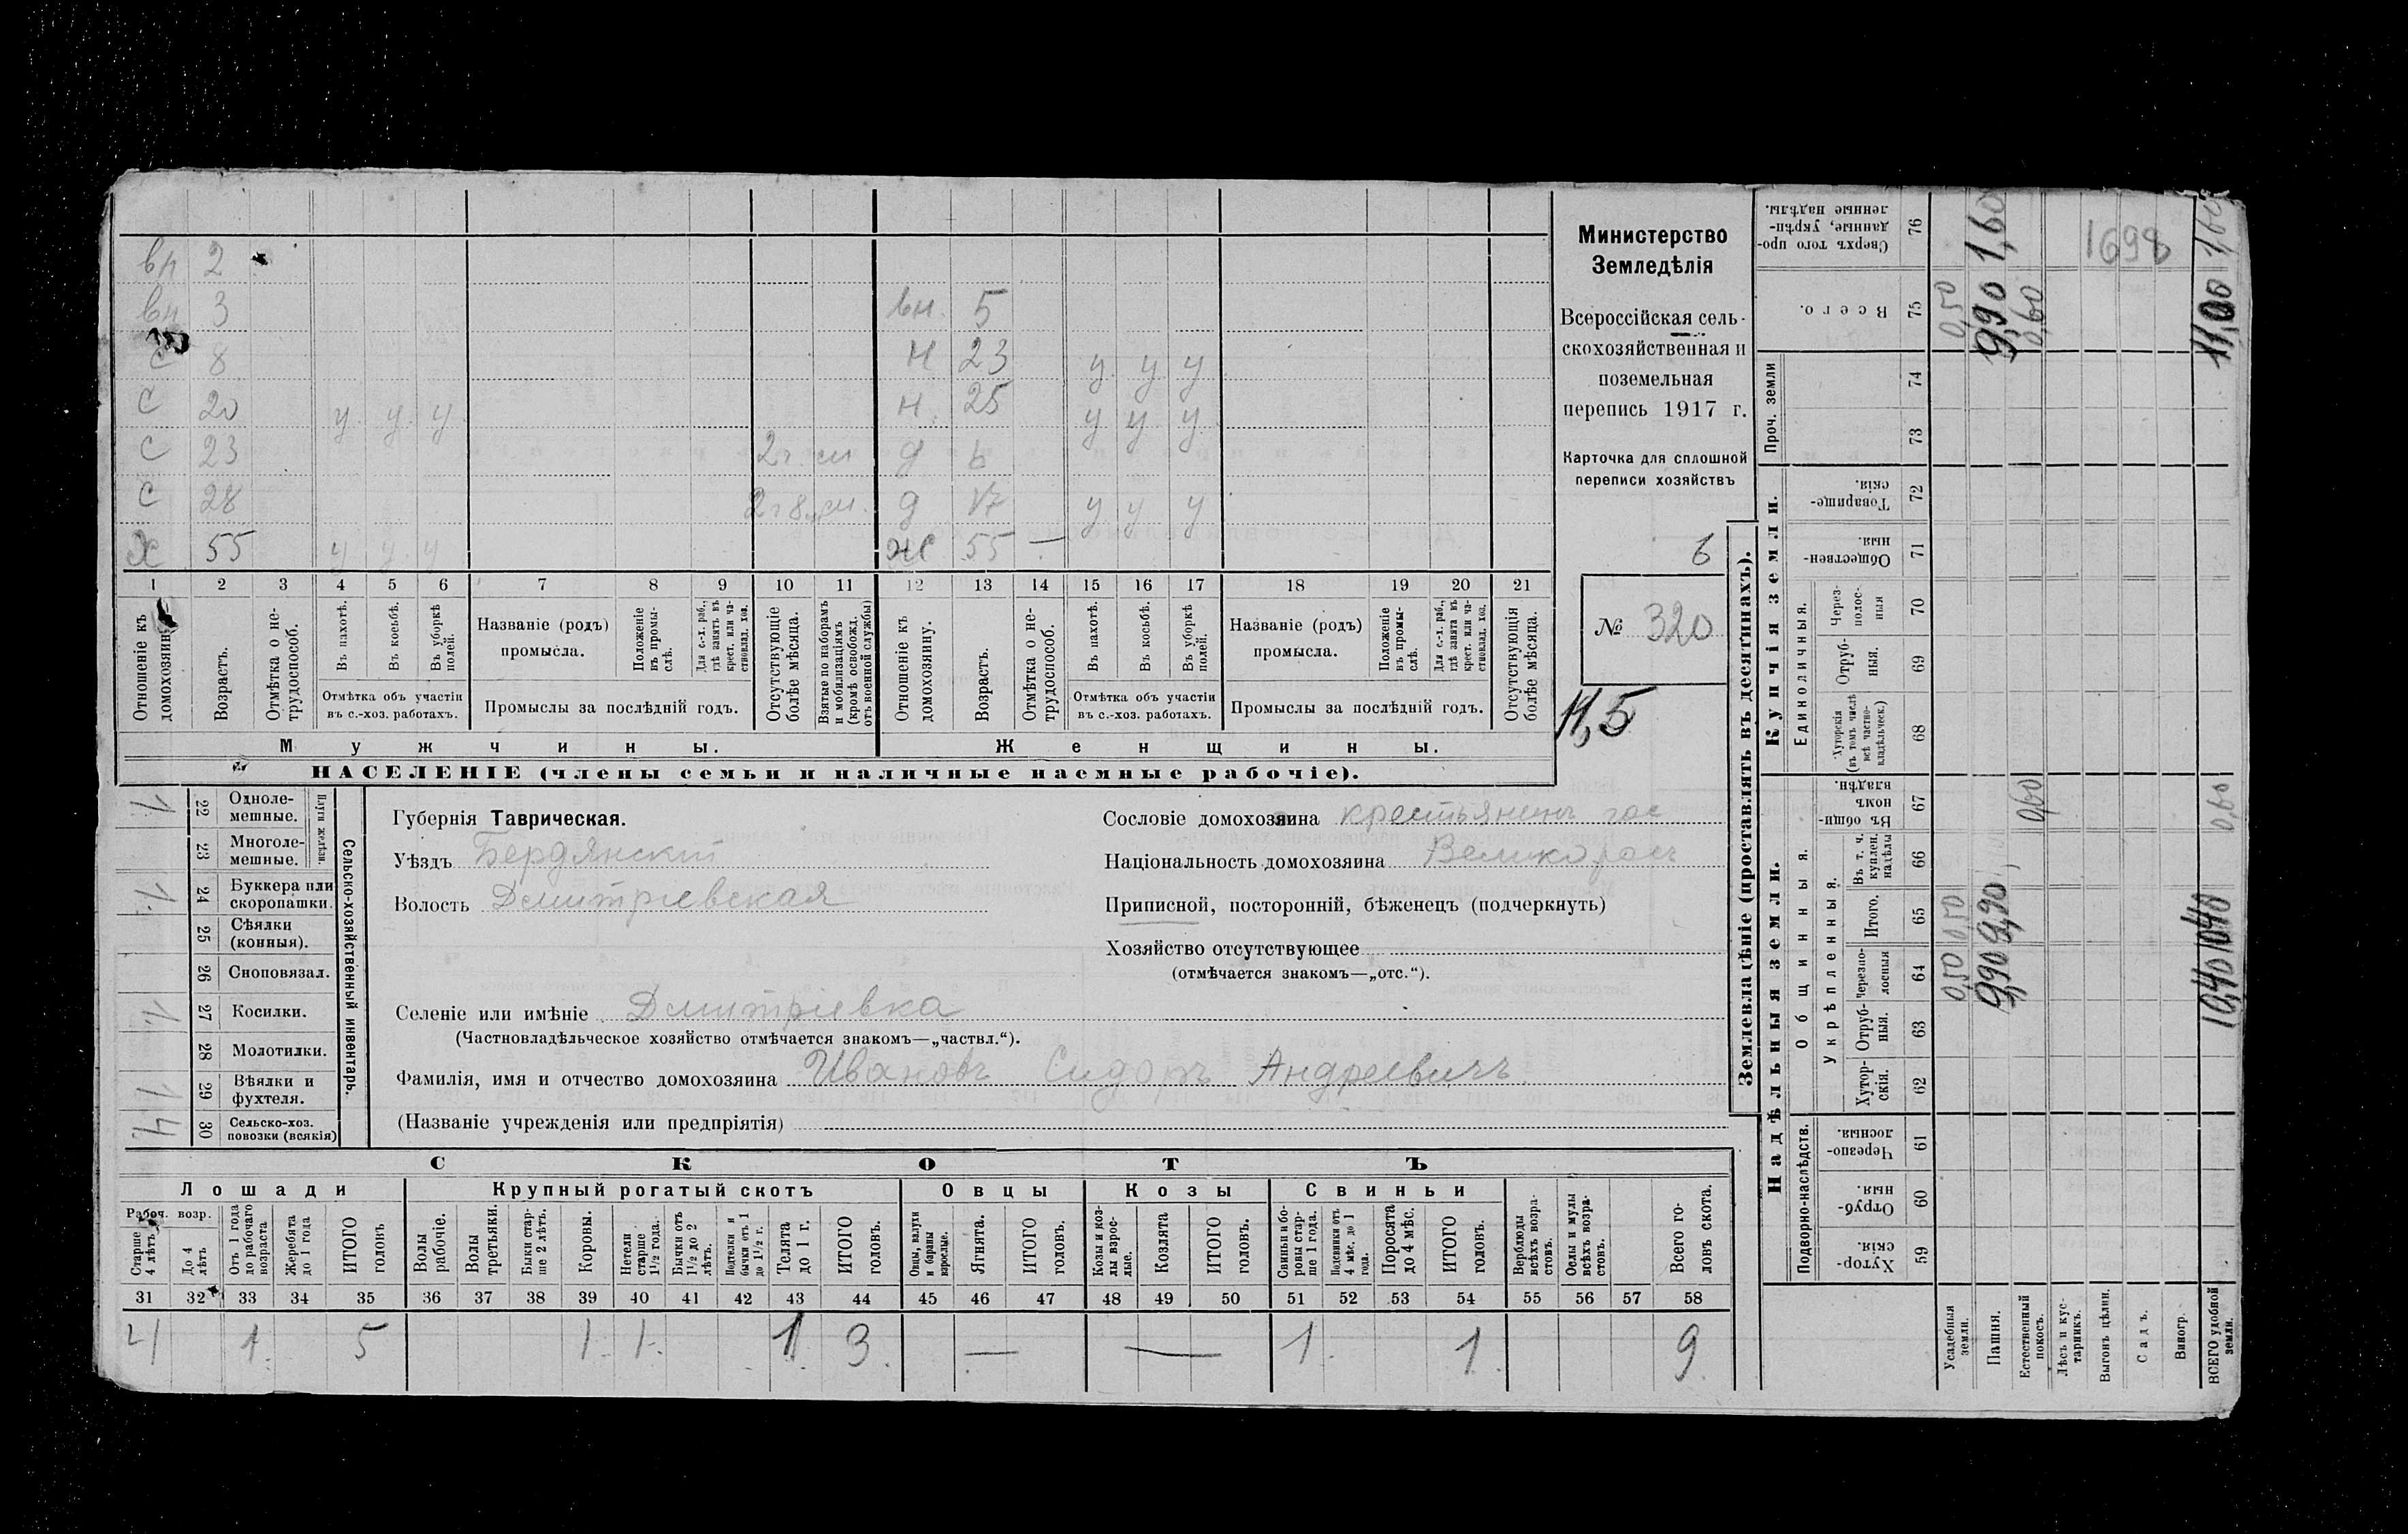 вн 2
вн 3 вн. 5
с 8 н 23 у у у
с 20 у у у н. 25 у у у
с 23 2 г. см д 6
с 28 2 г 8 м см. д 17 у у у
х 55 у у у ж 55 —
1 2 3 4 5 6 7 8 9 10 11 12 13 14 15 16 17 18 19 20 21
Отношеніе къ домохозяину.
Возрастъ.
Отмѣтка о не-трудоспособ.
Въ пахотѣ.
Въ косьбѣ.
Въ уборкѣ полей.
Отмѣтка объ участіи въ с.-хоз. работахъ.
Названіе (родъ) промысла.
Положеніе въ промы-слѣ.
Для с.-х. раб., гдѣ занятъ въ крест. или ча-стновлад. хоз.
Промыслы за послѣдній годъ.
Отсутствующіе болѣе мѣсяца.
Взятые по наборамъ и мобилизаціямъ (кромѣ освобожд. отъ военной службы)
Отношеніе къ домохозяину.
Возрастъ.
Отмѣтка о не-трудоспособ.
Въ пахотѣ.
Въ косьбѣ.
Въ уборкѣ полей.
Отмѣтка объ участіи въ с.-хоз. работахъ.
Названіе (родъ) промысла.
Положеніе въ промы-слѣ.
Для с.-х. раб., гдѣ занята въ крест. или ча-стновлад. хоз.
Промыслы за послѣдній годъ.
Отсутствующія болѣе мѣсяца.
Мужчины. Женщины.
НАСЕЛЕНІЕ (члены семьи и наличные наемные рабочіе).
Министерство
Земледѣлія
Всероссійская сель-
скохозяйственная и
поземельная
перепись 1917 г.
Карточка для сплошной
переписи хозяйствъ
6
№ 320
11,5
Сельско-хозяйственный инвентарь.
Плуги желѣзн.
22 Одноле-мешные. 1.
23 Многоле-мешные.
24 Буккера или скоропашки. 1.
25 Сѣялки (конныя).
26 Сноповязал.
27 Косилки. 1.
28 Молотилки.
29 Вѣялки и фухтеля. 1
30 Сельско-хоз. повозки (всякія) 4.
Губернія Таврическая.
Уѣздъ Бердянскій
Волость Дмитріевская
Сословіе домохозяина крестьянинъ гос
Національность домохозяина Великорос
Приписной, посторонній, бѣженецъ (подчеркнуть)
Хозяйство отсутствующее
(отмѣчается знакомъ—„отс.“).
Селеніе или имѣніе Дмитріевка
(Частновладѣльческое хозяйство отмѣчается знакомъ—„частвл.“).
Фамилія, имя и отчество домохозяина Ивановъ Сидоръ Андреевичъ
(Названіе учрежденія или предпріятія)
СКОТЪ
Лошади Крупный рогатый скотъ Овцы Козы Свиньи
Рабоч. возр.
Старше 4 лѣтъ
До 4 лѣтъ
Отъ 1 года до рабочаго возраста
Жеребята до 1 года
ИТОГО головъ
Волы рабочіе.
Волы третьяки.
Быки стар-ше 2 лѣтъ.
Коровы.
Нетели старше 1½ года.
Бычки отъ 1½ до 2 лѣтъ.
Подтелки и бычки отъ 1 до 1½ г.
Телята до 1 г.
ИТОГО головъ.
Овцы, валухи и бараны взрослые.
Ягнята.
ИТОГО головъ.
Козы и коз-лы взрос-лые.
Козлята
ИТОГО головъ.
Свиньи и бо-ровы стар-ше 1 года.
Подсвинки отъ 4 мѣс. до 1 года.
Поросята до 4 мѣс.
ИТОГО головъ.
Верблюды всѣхъ возра-стовъ.
Ослы и мулы всѣхъ возра-стовъ.
Всего го-ловъ скота.
31 32 33 34 35 36 37 38 39 40 41 42 43 44 45 46 47 48 49 50 51 52 53 54 55 56 57 58
4 1. 5 1. 1. 1. 3. — — 1. 1. 9
Землевладѣніе (проставлять въ десятинахъ).
Надѣльныя земли.
Купчія земли.
Проч. земли
Подворно-наслѣдств.
Общинныя.
Укрѣпленныя.
Единоличныя.
Хутор-скія. 59
Отруб-ныя. 60
Черезпо-лосныя. 61
Хутор-скія. 62
Отруб-ныя. 63
Черезпо-лосныя 64
Итого. 65
Въ т. ч. куплен. надѣлы 66
Въ общи-номъ владѣн. 67
Хуторскія (въ томъ числѣ всѣ частно-владѣльческ.) 68
Отруб-ныя. 69
Через-полос-ныя 70
Обществен-ныя. 71
Товарище-скія. 72
73
74
Всего. 75
Сверхъ того про-данные, укрѣп-ленные надѣлы. 76
Усадебныя земли. 0,50 0,50 0,50
Пашня. 9,90 9,90 9,90 1,60
Естественный покосъ. 0,60 0,60
Лѣсъ и кус-тарникъ.
Выгонъ цѣлин. 1698
Садъ.
Виногр.
ВСЕГО удобной земли. 10,40 10,40 0,60 11,00 1,60